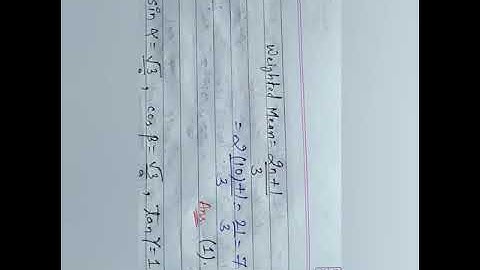 Weighted Mean = 2n+1/3
= 2(10)+1/3 = 21/3 = 7
Ans (1).
sin α = √3/2, cos β = √3/2, tan γ = 1